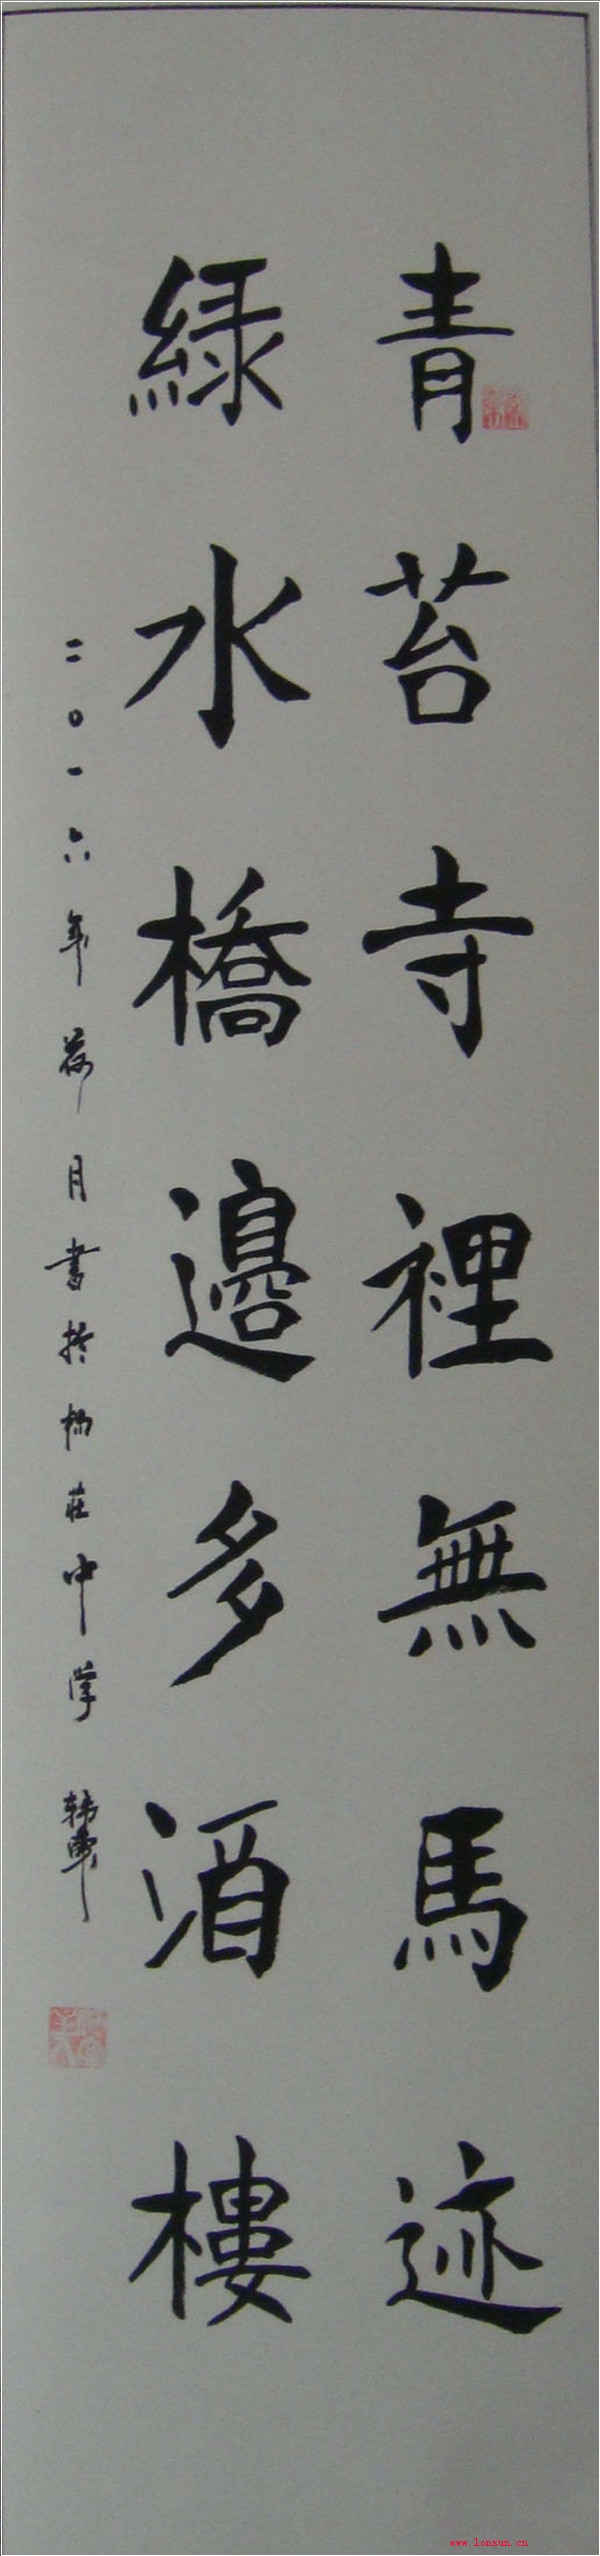 青苔寺裡無馬迹
綠水橋邊多酒樓
二〇一六年荷月書於楊莊中学 韩軍
www.lonsun.cn